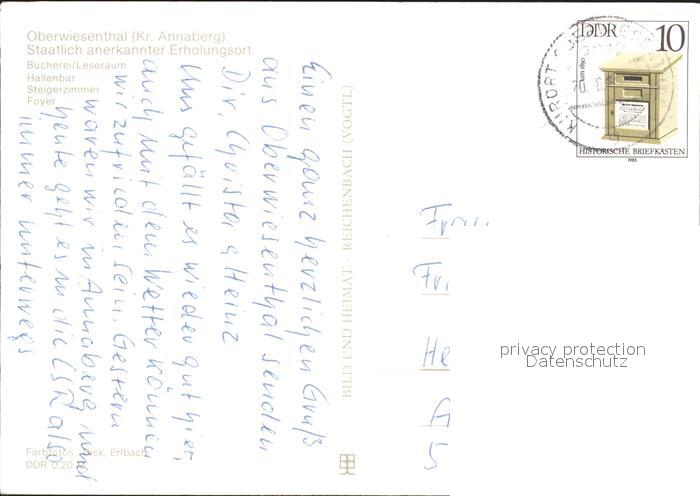 Oberwiesenthal (Kr. Annaberg)
Staatlich anerkannter Erholungsort
Bücherei/Leseraum
Hallenbar
Steigerzimmer
Foyer
Einen ganz herzlichen Gruß
aus Oberwiesenthal senden
Dir, Christa & Heinz
Uns gefällt es wieder gut hier,
auch mit dem Wetter können
wir zufrieden sein. Gestern
waren wir in Annaberg und
heute geht es in die ČSR also
immer unterwegs
Farbfotos: Beck, Erlbach
DDR 0,20
BILD UND HEIMAT · REICHENBACH (VOGTL)
KURORT
DDR 10
um 1890
HISTORISCHE BRIEFKÄSTEN
1985
Fr
He
G
5
privacy protection
Datenschutz